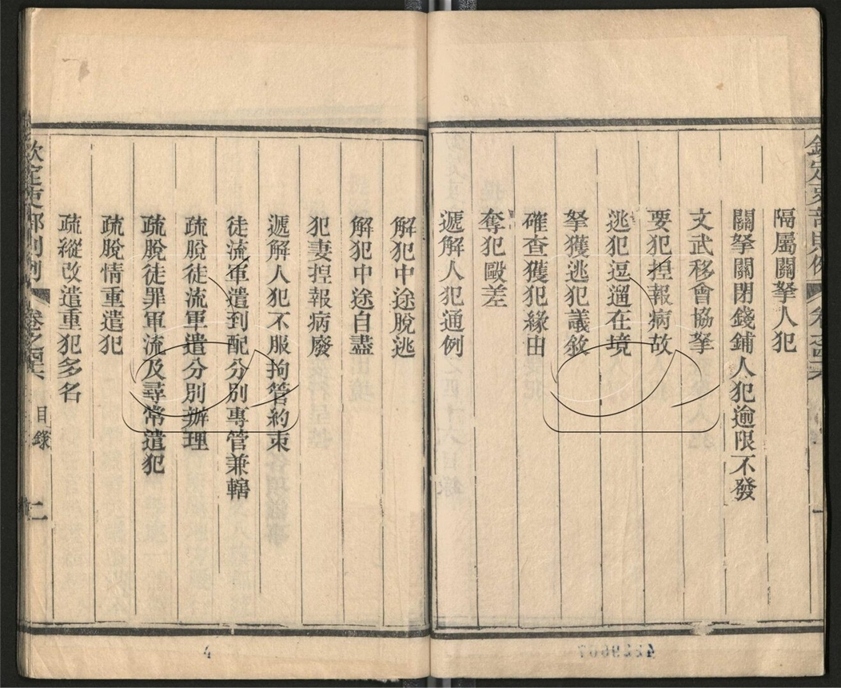 欽定吏部則例
隔屬關拏人犯
關拏關閉錢鋪人犯逾限不發
文武移會協拏
要犯捏報病故
逃犯逗遛在境
拏獲逃犯議敘
確查獲犯緣由
奪犯毆差
遞解人犯通例
解犯中途脫逃
解犯中途自盡
犯妻捏報病廢
遞解人犯不服拘管約束
徒流軍遣到配分別專管兼轄
疏脫徒流軍遣分別辦理
疏脫徒罪軍流及尋常遣犯
疏脫情重遣犯
疏縱改遣重犯多名
欽定吏部則例 卷之 目錄 二